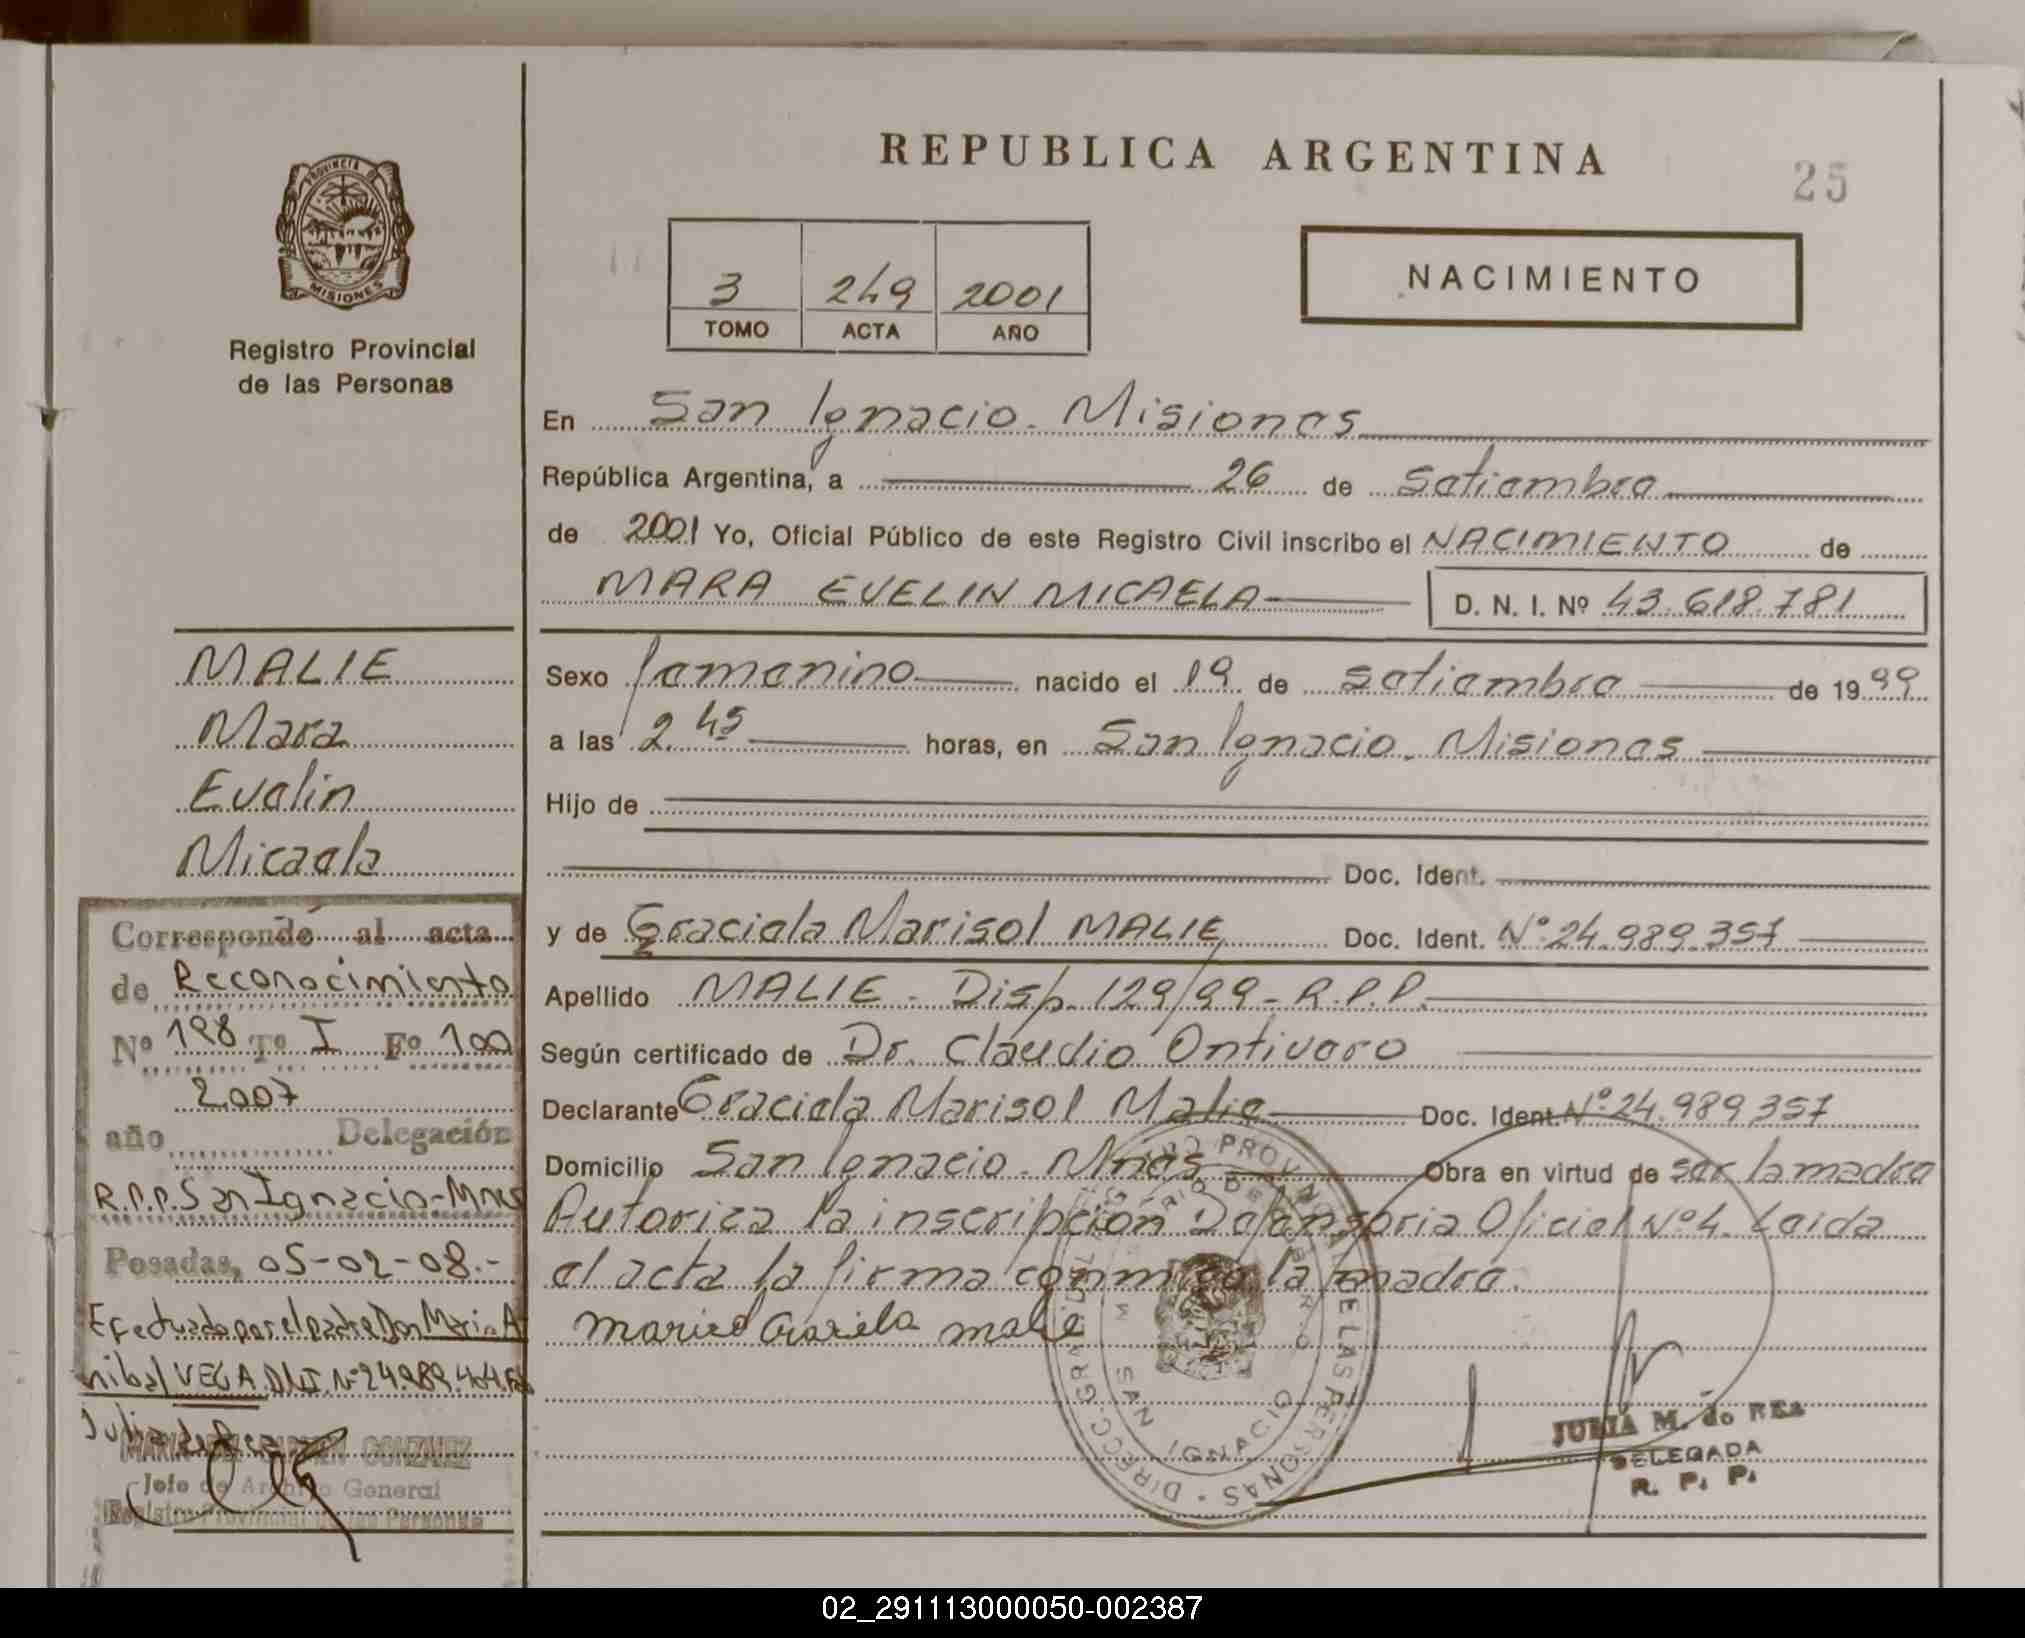 REPUBLICA ARGENTINA
25
PROVINCIA DE
MISIONES
Registro Provincial
de las Personas
3 249 2001
TOMO ACTA AÑO
NACIMIENTO
En San Ignacio. Misiones
República Argentina, a 26 de setiembre
de 2001 Yo, Oficial Público de este Registro Civil inscribo el NACIMIENTO de
MARA EVELIN MICAELA D. N. I. Nº 43.618.781
Sexo femenino nacido el 19 de setiembre de 1999
a las 2.45 horas, en San Ignacio. Misiones
Hijo de
Doc. Ident.
y de Graciela Marisol MALIE Doc. Ident. Nº 24.989.357
Apellido MALIE - Disp. 129/99 - R.P.P.
Según certificado de Dr. Claudio Ontivero
Declarante Graciela Marisol Malie Doc. Ident. Nº 24.989357
Domicilio San Ignacio. Mnes Obra en virtud de ser la madre
Autoriza la inscripción Defensoría Oficial Nº 4. Leida
el acta la firma conmigo la madre.
MALIE
Mara
Evelin
Micaela
Corresponde al acta
de Reconocimiento
Nº 198 Tº I Fº 100
2007
año Delegación
R.P.P. San Ignacio-Mnes
Posadas, 05-02-08.-
Efectuado por el padre Don Mario A
nibal VEGA DNI Nº 24.989.404
GONZALEZ
Jefe de Archivo General
Registro Provincial de las Personas
SAN IGNACIO
JULIA M. do REA
DELEGADA
R. P. P.
02_291113000050-002387